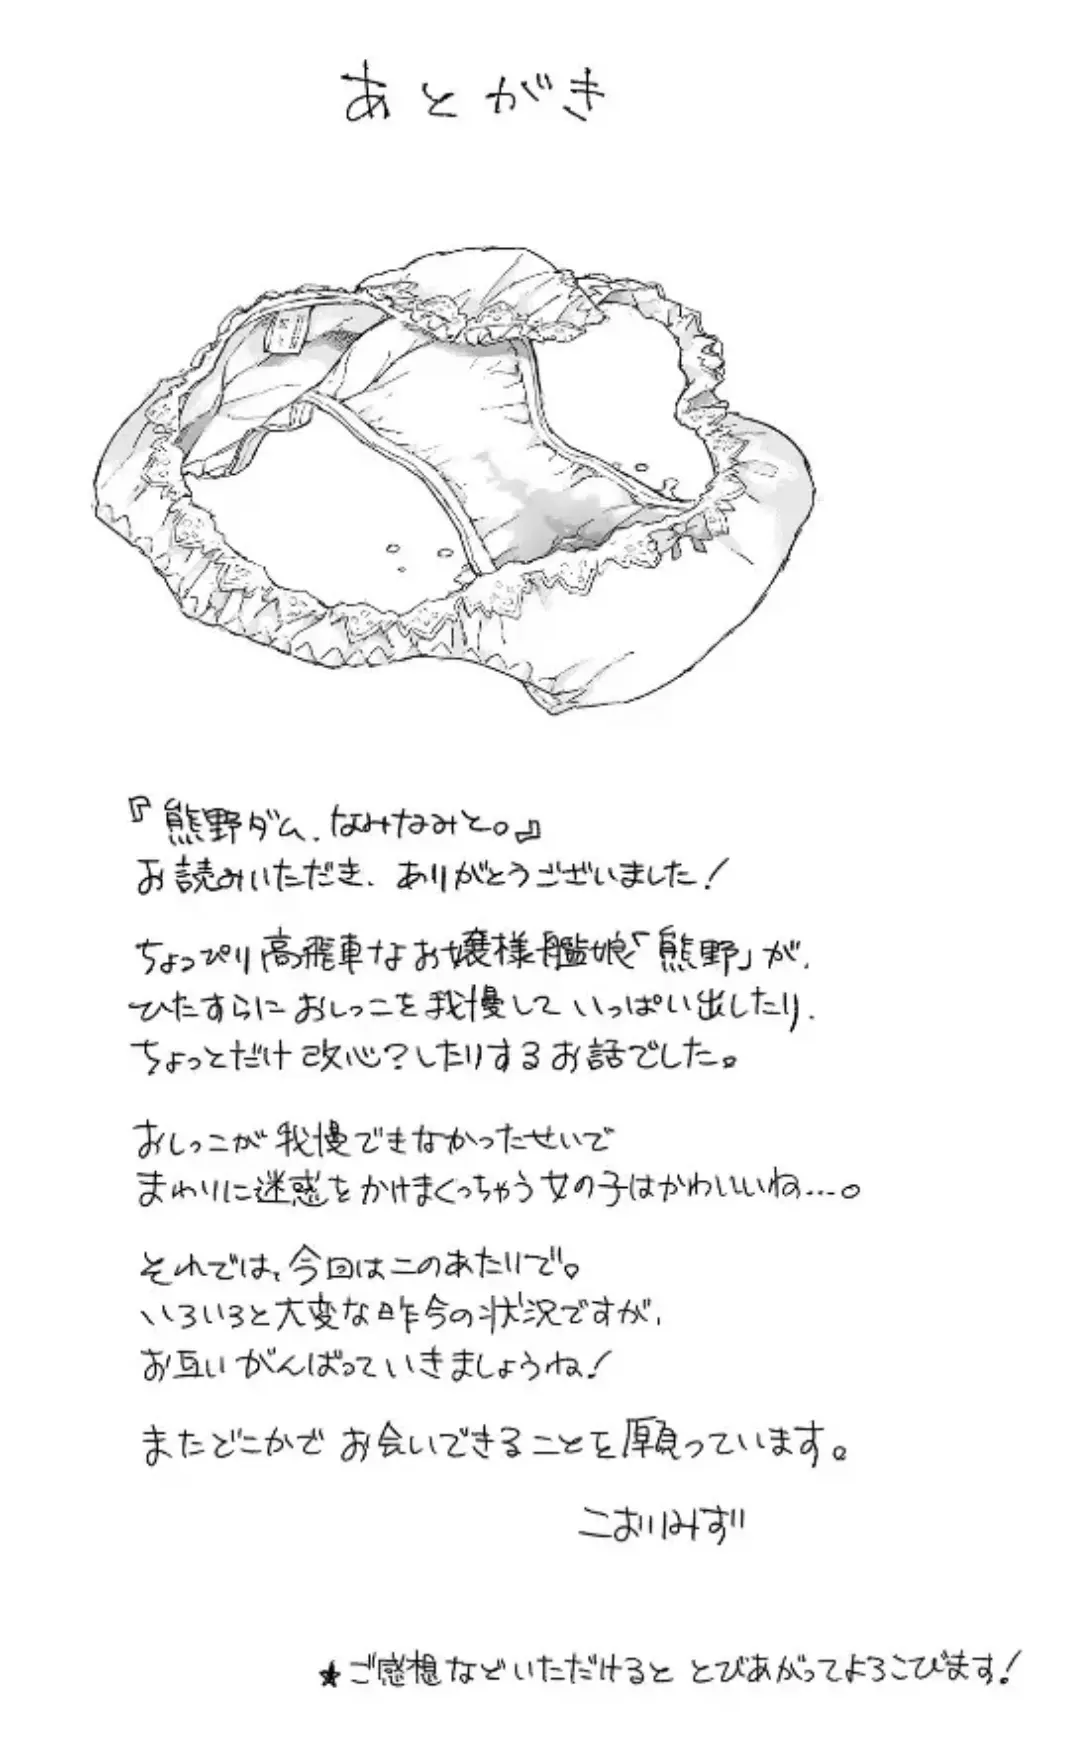 あとがき
『熊野ダム、なみなみと。』
お読みいただき、ありがとうございました!
ちょっぴり高飛車なお嬢様艦娘「熊野」が、
ひたすらにおしっこを我慢していっぱい出したり、
ちょっとだけ改心?したりするお話でした。
おしっこが我慢できなかったせいで
まわりに迷惑をかけまくっちゃう女の子はかわいいね…。
それでは、今回はこのあたりで。
いろいろと大変な昨今の状況ですが、
お互いがんばっていきましょうね!
またどこかでお会いできることを願っています。
こおりみず
★ご感想などいただけるととびあがってよろこびます!